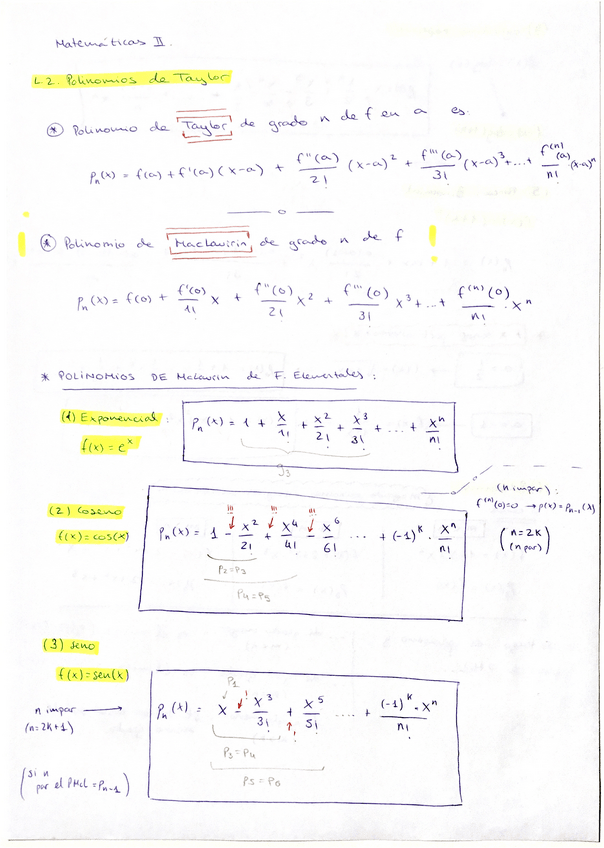 Matemáticas II.
4.2. Polinomios de Taylor
* Polinomio de Taylor de grado n de f en a es:
Pn(x) = f(a) + f'(a)(x-a) + f''(a)/2! (x-a)² + f'''(a)/3! (x-a)³ + ... + f⁽ⁿ⁾(a)/n! · (x-a)ⁿ
* Polinomio de Maclaurin de grado n de f
Pn(x) = f(0) + f'(0)/1! x + f''(0)/2! x² + f'''(0)/3! x³ + ... + f⁽ⁿ⁾(0)/n! · xⁿ
* POLINOMIOS DE McLaurin de F. Elementales:
(1) Exponencial:
f(x) = eˣ
Pn(x) = 1 + x/1! + x²/2! + x³/3! + ... + xⁿ/n!
(n impar):
f⁽ⁿ⁾(0)=0 → p(x) = Pn-1(x)
(2) Coseno
f(x) = cos(x)
!!! !!! !!!
Pn(x) = 1 - x²/2! + x⁴/4! - x⁶/6! ... + (-1)ᵏ · xⁿ/n!
(n=2k)
(n par)
P2=P3
P4=P5
(3) seno
f(x) = sen(x)
P1
n impar →
(n=2k+1)
Pn(x) = x - x³/3! + x⁵/5! .... + (-1)ᵏ · xⁿ/n!
P3=P4
P5=P6
(si n
par el PMcl = Pn-1)